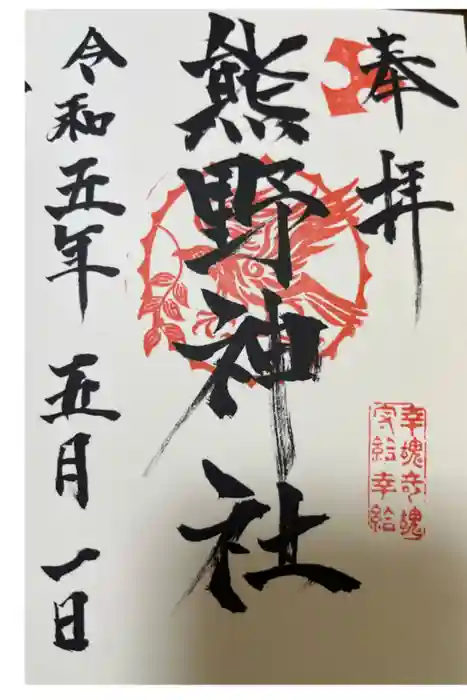 奉拝
熊野神社
幸魂奇魂
守給幸給
令和五年五月一日